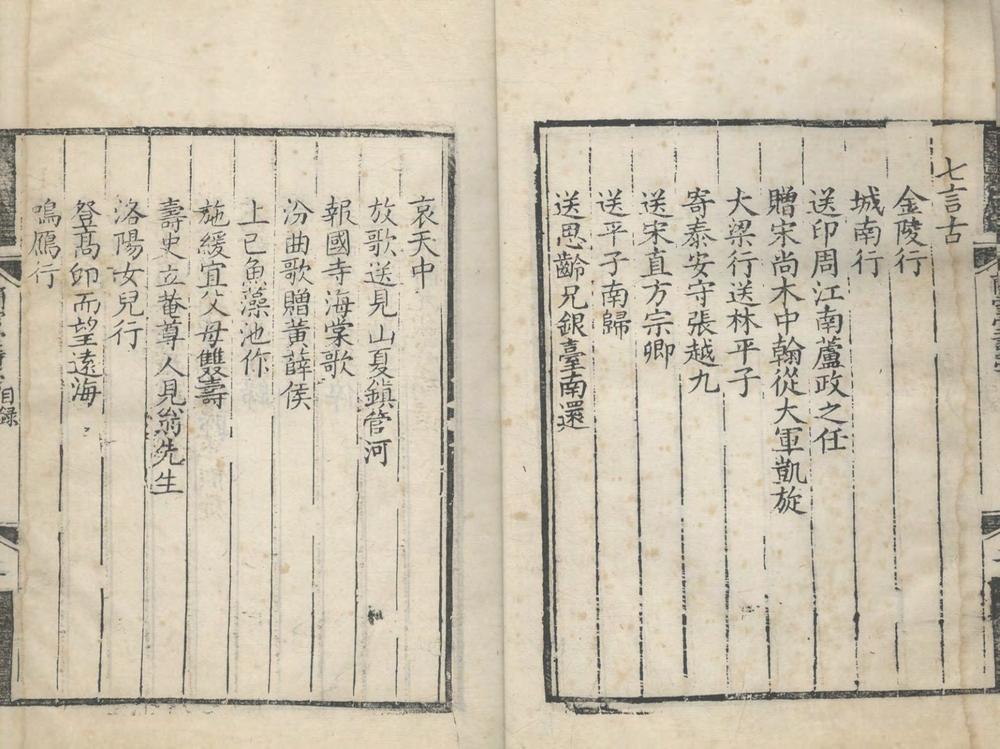 七言古
金陵行
城南行
送印周江南蘆政之任
贈宋尚木中翰從大軍凱旋
大梁行送林平子
寄泰安守張越九
送宋直方宗卿
送平子南歸
送思齡兄銀臺南還
哀天中
放歌送見山夏鎮管河
報國寺海棠歌
汾曲歌贈黃薛侯
上巳魚藻池作
施緩宜父母雙壽
壽史立菴尊人見翁先生
洛陽女兒行
登高卬而望遠海
鳴鴈行
目録